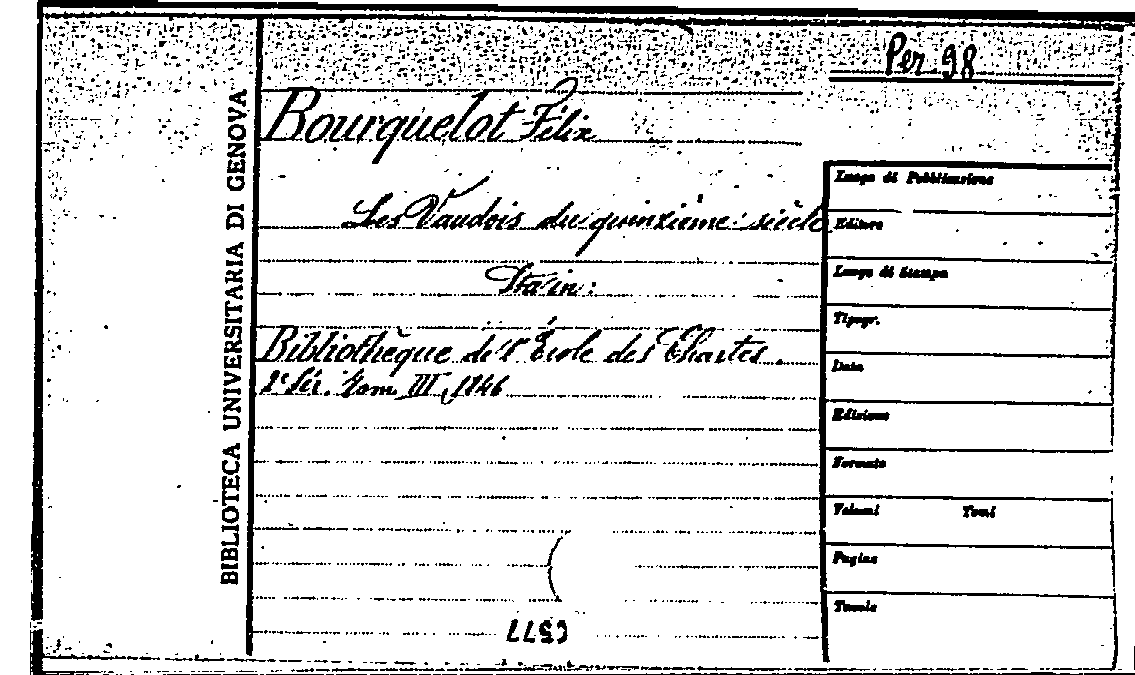 Per. 98
BIBLIOTECA UNIVERSITARIA DI GENOVA
Bourquelot Félix
Les Vaudois du quinzième siècle
Sta in:
Bibliothèque de l'École des Chartes.
2e Sér. Tom. III, 1846
Luogo di Pubblicazione
Editore
Luogo di Stampa
Tipogr.
Data
Edizione
Formato
Volumi Tomi
Pagine
Tavole